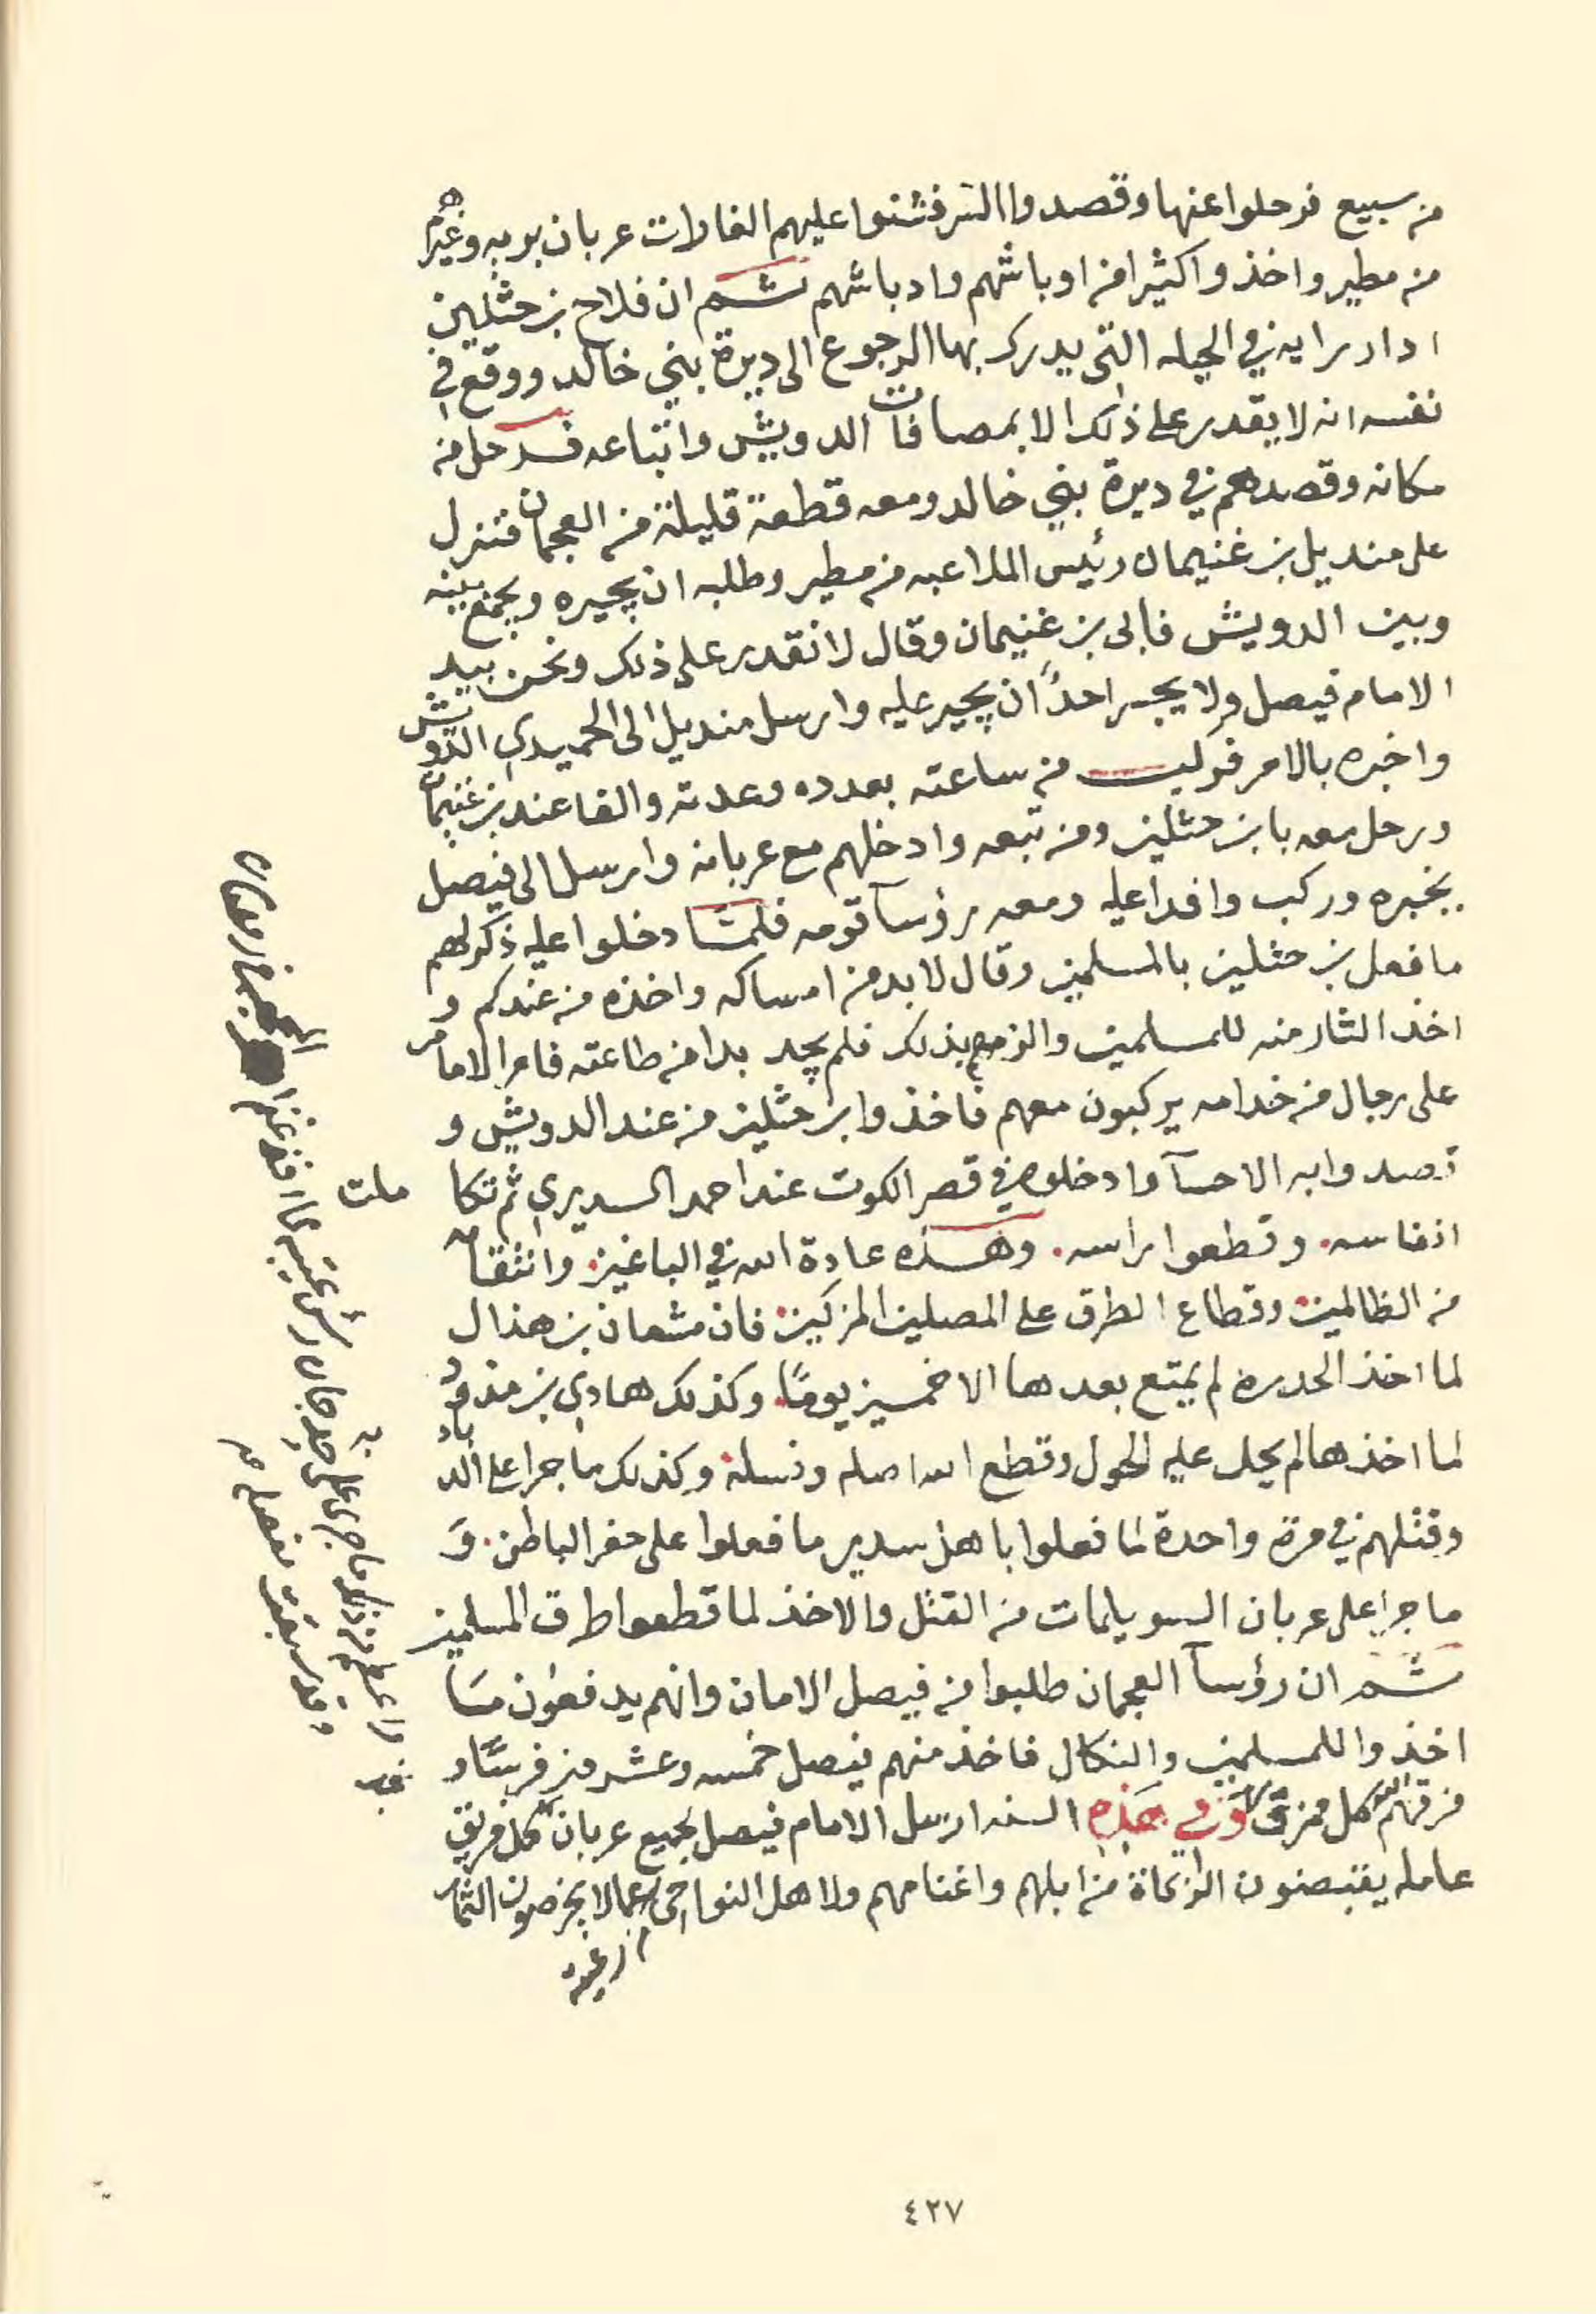 من سبيع فرحلوا عنها وقصدوا السر فشنوا عليهم الغارات عربان بريه وغيرهم
من مطير واخذوا كثيرا من اوباشهم وادباشهم ثم ان فلاح بن حثلين
ادار رايه في الحيله التي يدرك بها الرجوع الى ديرة بني خالد ووقع في
نفسه انه لا يقدر على ذلك الا بمصافات الدويش واتباعه فرحل من
مكانه وقصدهم في ديرة بني خالد ومعه قطعة قليلة من العجمان فنزل
على منديل بن غنيمان رئيس الملاعبه من مطير وطلبه ان يجيره ويجمع بينه
وبين الدويش فابى بن غنيمان وقال لا نقدر على ذلك ونحن بيد
الامام فيصل ولا يجسر احدًا ان يجير عليه وارسل منديل الى الحميدي الدويش
واخبره بالامر فركب من ساعته بعدده وعدته والفا عند بن غنيمان
ورحل معه بابن حثلين ومن تبعه وادخلهم مع عربانه وارسل الى فيصل
يخبره وركب وافدا عليه ومعه رؤسآ قومه فلمّا دخلوا عليه ذكر لهم
ما فعل بن حثلين بالمسلمين وقال لا بد من امساكه واخذه من عندكم و
اخذ الثار منه للمسلمين والزمهم بذلك فلم يجد بدا من طاعته فامر الامام
على رجال من خدامه يركبون معهم فاخذوا بن حثلين من عند الدويش و
قصدوا به الاحسآ وادخلوه في قصر الكوت عند احمد السديري ثم تكاملت
انفاسه. وقطعوا راسه. وهذه عادة الله في الباغين. وانتقامه
من الظالمين. وقطاع الطرق على المصلين المزكين. فان مشعان بن هذال
لما اخذ الحدره لم يمتع بعدها الا خمسين يومًا. وكذلك هادي بن مذود
لما اخذها لم يحل عليه الحول وقطع الله اصله ونسله. وكذلك ما جرا على
وقتلهم في مرة واحدة لما فعلوا باهل سدير ما فعلوا على حفر الباطن. وَ
ما جرا على عربان السويلمات من القتل والاخذ لما قطعوا طرق المسلمين
ثم ان رؤسآ العجمان طلبوا من فيصل الامان وانهم يدفعون مَا
اخذوا للمسلمين والنكال فاخذ منهم فيصل خمسه وعشرين فرسًا و
فرقهم الله كل ممزق وفي هذه السنه ارسل الامام فيصل لجميع عربان لكل فريق
عامله يقبضون الزكاة من ابلهم واغنامهم ولاهل النواحي عمالا يخرصون الثمار
٤٢٧